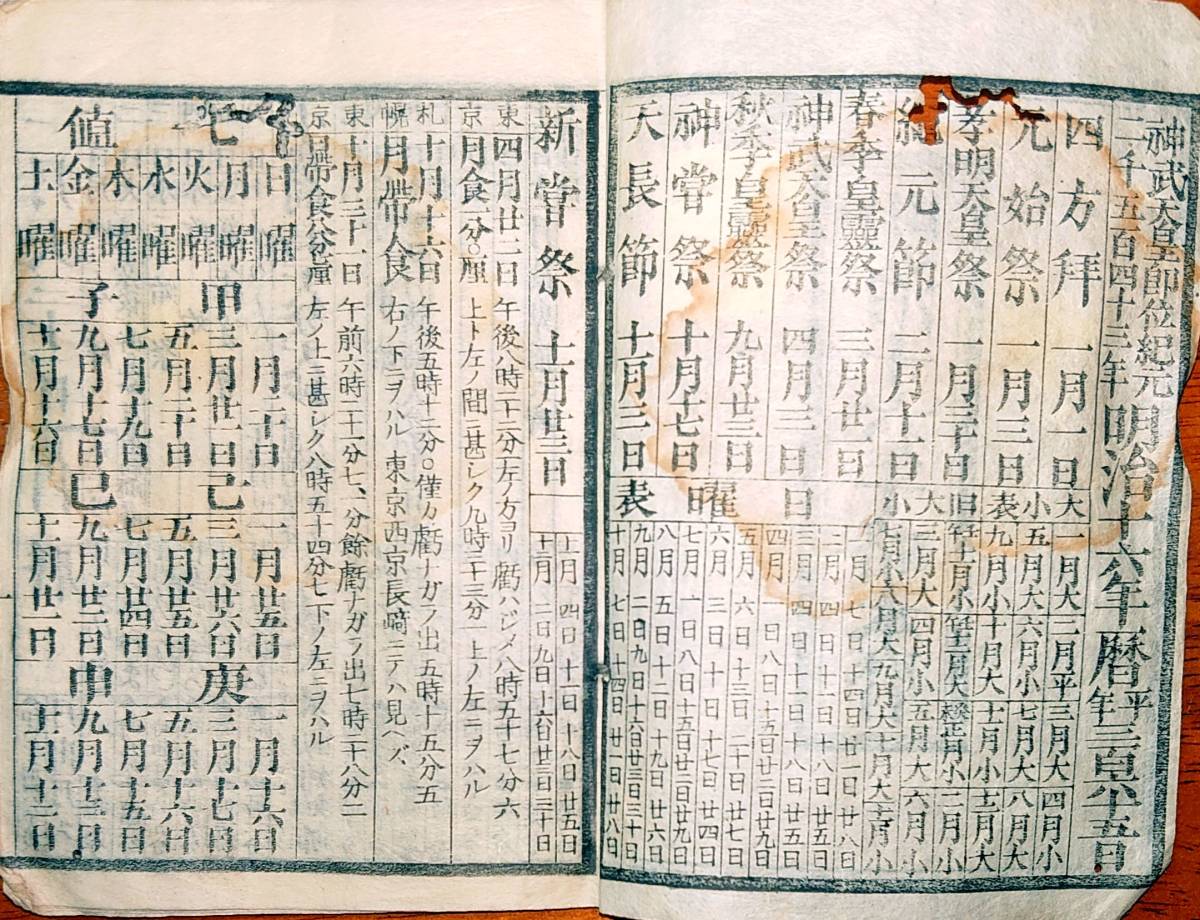 神武天皇即位紀元
二千五百四十三年
明治十六年曆
平年三百六十五日
四方拜 一月一日
元始祭 一月三日
孝明天皇祭 一月三十日
紀元節 二月十一日
春季皇靈祭 三月廿一日
神武天皇祭 四月三日
秋季皇靈祭 九月廿三日
神嘗祭 十月十七日
天長節 十一月三日
大 小 表
一月大 二月平 三月大 四月小
五月大 六月小 七月大 八月大
九月小 十月大 十一月小 十二月大
旧 大 小
二月小
三月大 四月小 五月大 六月小
七月小 八月大 九月大 十月大 十一月小
日 曜 表
一月 七日 十四日 廿一日 廿八日
二月 四日 十一日 十八日 廿五日
三月 四日 十一日 十八日 廿五日
四月 一日 八日 十五日 廿二日 廿九日
五月 六日 十三日 二十日 廿七日
六月 三日 十日 十七日 廿四日
七月 一日 八日 十五日 廿二日 廿九日
八月 五日 十二日 十九日 廿六日
九月 二日 九日 十六日 廿三日 三十日
十月 七日 十四日 廿一日 廿八日
新嘗祭 十一月廿三日
十一月 四日 十一日 十八日 廿五日
十二月 二日 九日 十六日 廿三日 三十日
東京
四月廿二日
月食一分〇厘
午後八時三十二分左ノ方ヨリ虧ハジメ八時五十七分六
上ト左ノ間ニ甚シク九時二十三分 上ノ左ニヲハル
札幌
十月十六日
月帶食
午後五時十三分〇僅カ虧ナガラ出五時十五分五
右ノ下ニヲハル 東京西京長崎ニテハ見ヘズ
東京
十月三十一日
日帶食八分 厘
午前六時二十一分七、一分餘虧ナガラ出七時三十八分二
左ノ上ニ甚シク八時五十四分七下ノ左ニヲハル
七 値
日曜
月曜
火曜
水曜
木曜
金曜
土曜
甲子
一月二十日
三月廿一日
五月二十日
七月十九日
九月十七日
十一月十六日
己巳
一月廿五日
三月廿六日
五月廿五日
七月廿四日
九月廿二日
十一月廿一日
庚申
一月十六日
三月十七日
五月十六日
七月十五日
九月十三日
十一月十二日